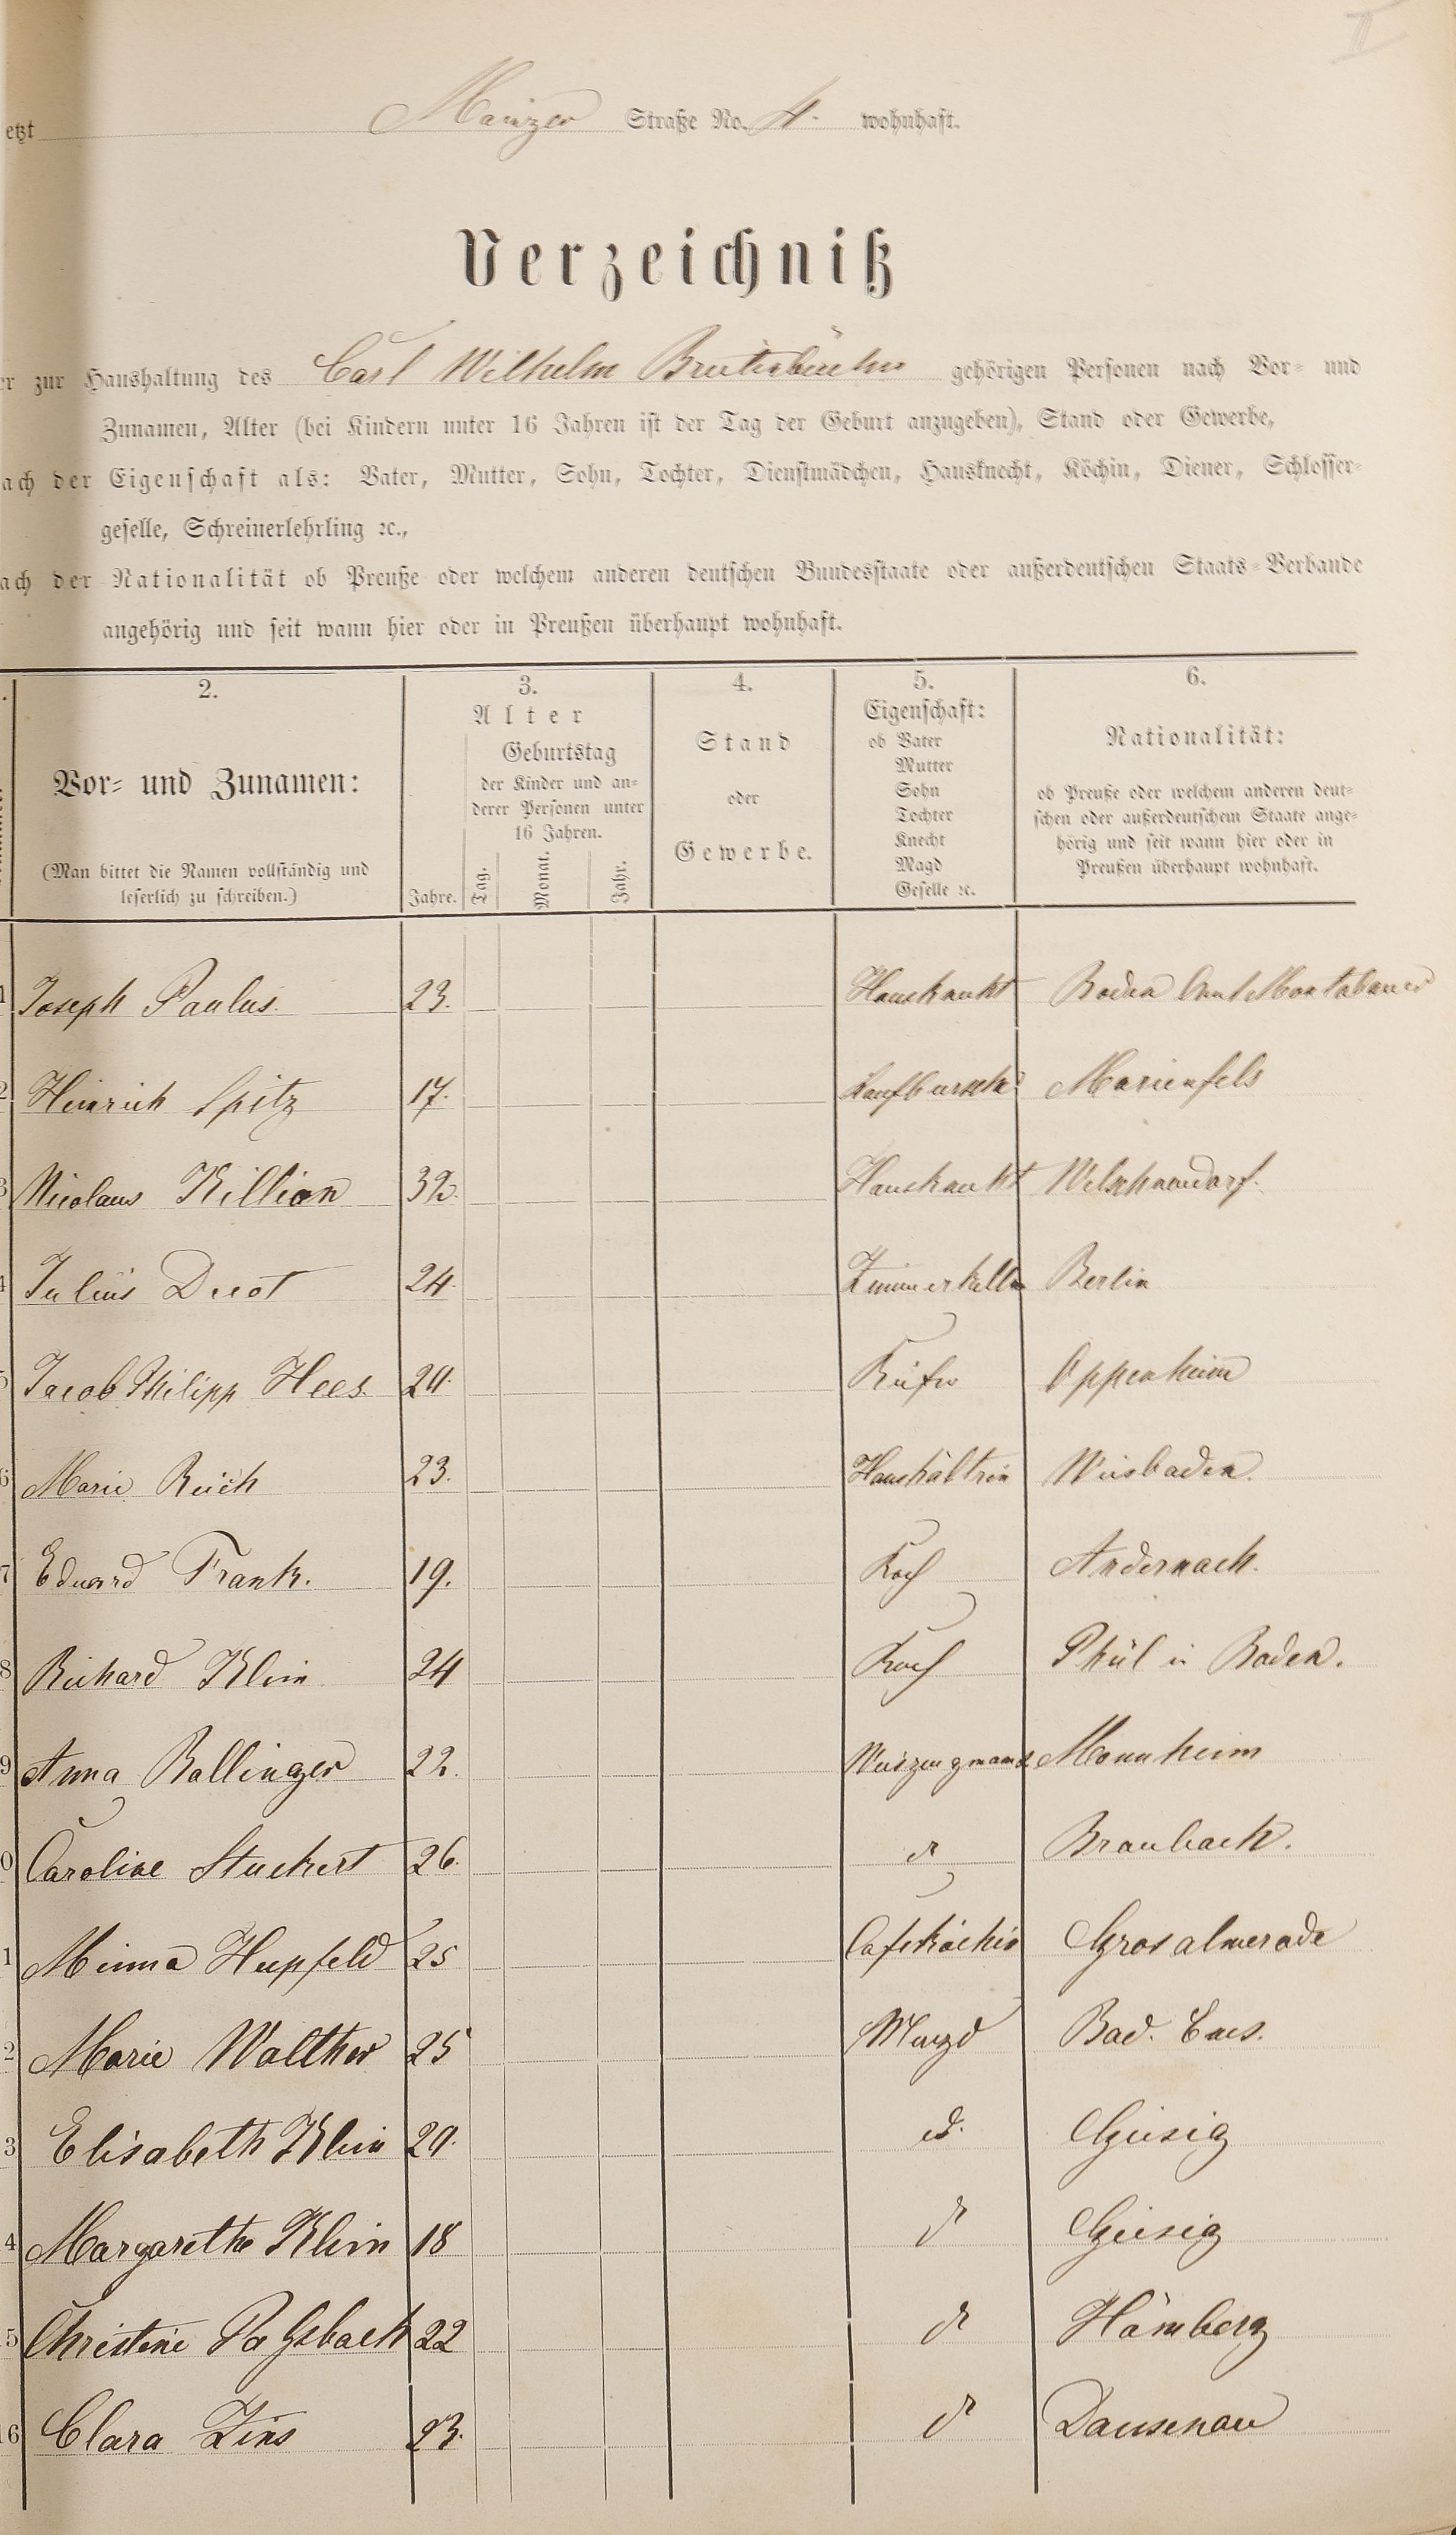 II
etzt Mainzer Straße No. 4. wohnhaft.
Verzeichniß
er zur Haushaltung des Carl Wilhelm gehörigen Personen nach Vor- und
Zunamen, Alter (bei Kindern unter 16 Jahren ist der Tag der Geburt anzugeben), Stand oder Gewerbe,
ach der Eigenschaft als: Vater, Mutter, Sohn, Tochter, Dienstmädchen, Hausknecht, Köchin, Diener, Schlosser-
geselle, Schreinerlehrling ꝛc.,
ach der Nationalität ob Preuße oder welchem anderen deutschen Bundesstaate oder außerdeutschen Staats-Verbande
angehörig und seit wann hier oder in Preußen überhaupt wohnhaft.
2.
Vor- und Zunamen:
(Man bittet die Namen vollständig und
leserlich zu schreiben.)
3.
Alter
Jahre.
Geburtstag
der Kinder und an-
derer Personen unter
16 Jahren.
Tag. Monat. Jahr.
4.
Stand
oder
Gewerbe.
5.
Eigenschaft:
ob Vater
Mutter
Sohn
Tochter
Knecht
Magd
Geselle ꝛc.
6.
Nationalität:
ob Preuße oder welchem anderen deut-
schen oder außerdeutschem Staate ange-
hörig und seit wann hier oder in
Preußen überhaupt wohnhaft.
1 Joseph Paulus. 23. Hausknecht Boden Amt Montabauer
2 Heinrich Spitz 17. Laufbursche Marienfels
3 Nicolaus Killian 32. Hausknecht Welschneudorf.
4 Julius 24. Zimmerkellner Berlin
5 Jacob Philipp Hees. Küfer Oppenheim
6 Marie Reich 23. Haushältrin Wiesbaden.
7 Eduard Frank. 19. Koch Andernach.
8 Richard Klein 24 Koch in Baden.
9 Anna Ballinger 22. Mannheim
0 Caroline Stuckert 26. d Braubach.
1 Minna Hupfeld 25 Cafeköchin Grosalmerode
2 Marie Walther 25 Magd Bad. Ems.
3 Elisabeth Klein d. Giesig
4 Margarethe Klein 18 d Giesig
5 Christine 22 d Hömberg
16 Clara Zins 23. d Dausenau